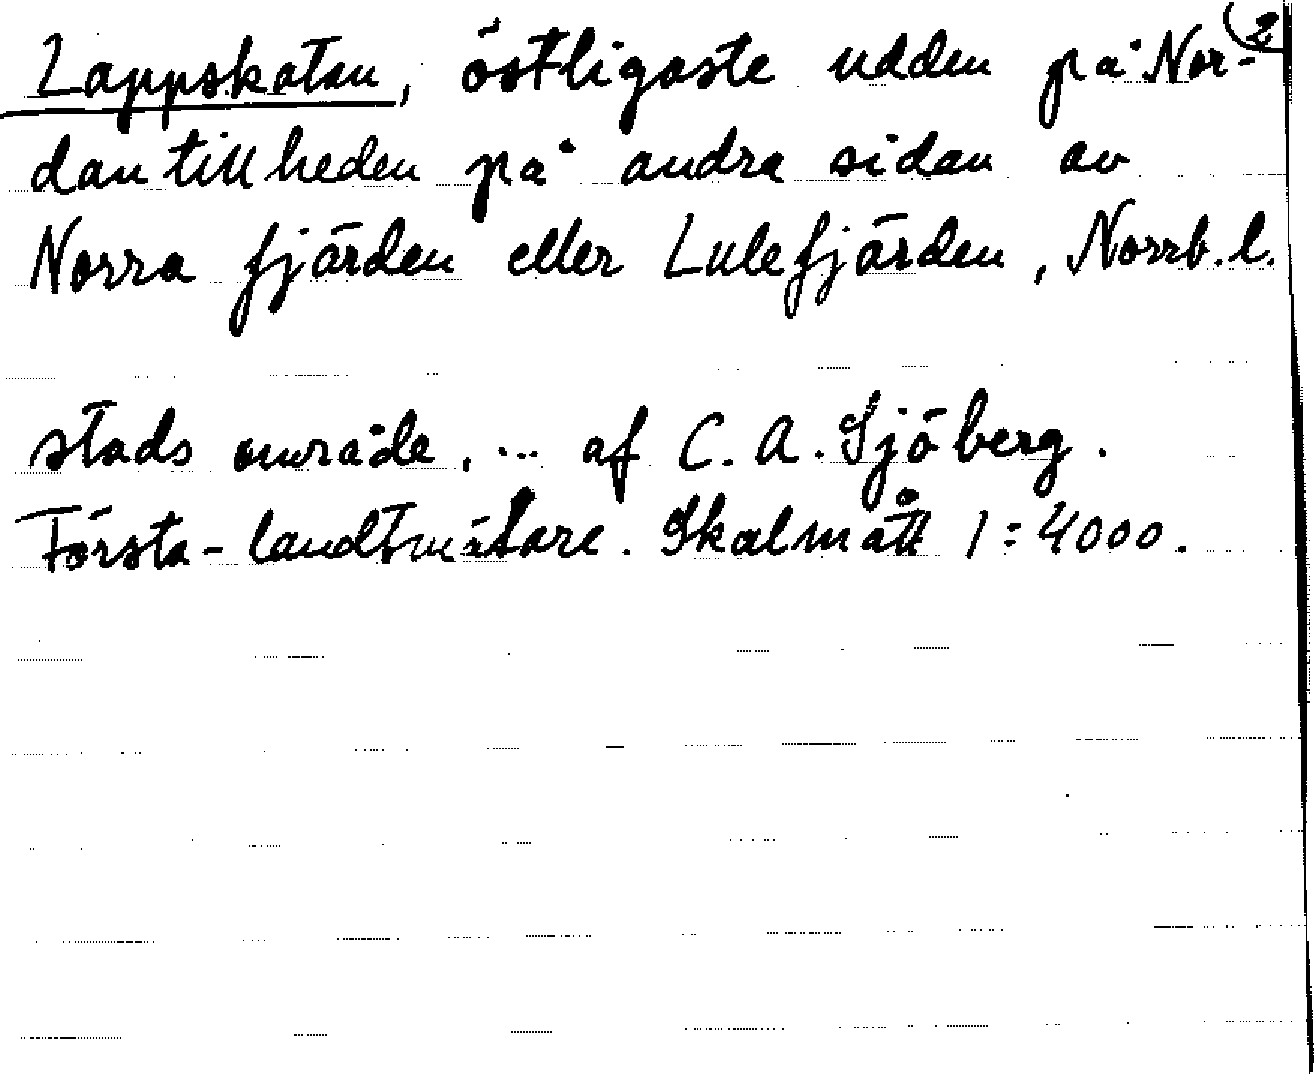 2
Lappskatan, östligaste udden på Nor-
dantillheden på andra sidan av
Norra fjärden eller Lulefjärden, Norrb. l.
stads område, ... af C. A. Sjöberg.
Första-landtmätare. Skalmått 1:4000.